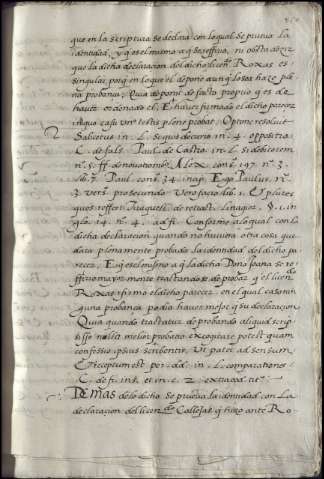 que en la scriptura se declara con lo qual se prueva la
identidad, y q̃ es el mismo a q̃ se reffiere, ni obsta dezir
que la dicha declaracion del dicho licenᵈᵒ Roxas es
singular, porq̃ en lo que el depone aunq̃ solo sea haze ple
na probança, Quia deponit de facto proprio q̃ es de
haverle ordenado el, E haver firmado el dicho parecer
in quo casu vnus testis plene probat, Optime resoluit
Salicetus in. L. si quis decurio in. 4. opposit.
C. de fals. Paul. de Castro in. L.
n. 5. ff de novationib. Alex. cons. 197. n. 3.
lib. 7. Paul. cons. 34. Ego Paulus, n.
3. vers. pro secundo. Vero facto lib. 1. Et plures
quos reffert Tiraquell. de retract. Linagier. §. 1. in
glo. 14. n. 4. ad fi. Conforme a lo qual con la
dicha declaracion quando no huviera otra cosa que
data plenamente probada la identidad del dicho pa
recer, E q̃ es el mismo a q̃ la dicha Doña Juana se re
ffirio mayormente tractandose de probar q̃ el licenᵈᵒ
Roxas firmo el dicho parecer, en el qual caso nin
guna probança podia haver mejor q̃ su declaracion
Quia quando tractatur de probando aliquid scrip
sisse non est melior probatio excogitare potest quam
confessio ipsius scribentis, Vt patet ad sensum
Et receptum est per. dd. in. L. comparationes
C. de fi. inst. et in c. 2. extra eod. tit.
Demas de lo dicho se prueva la identidad con La
declaracion del licenᵈᵒ Callejas q̃ hizo ante Ro